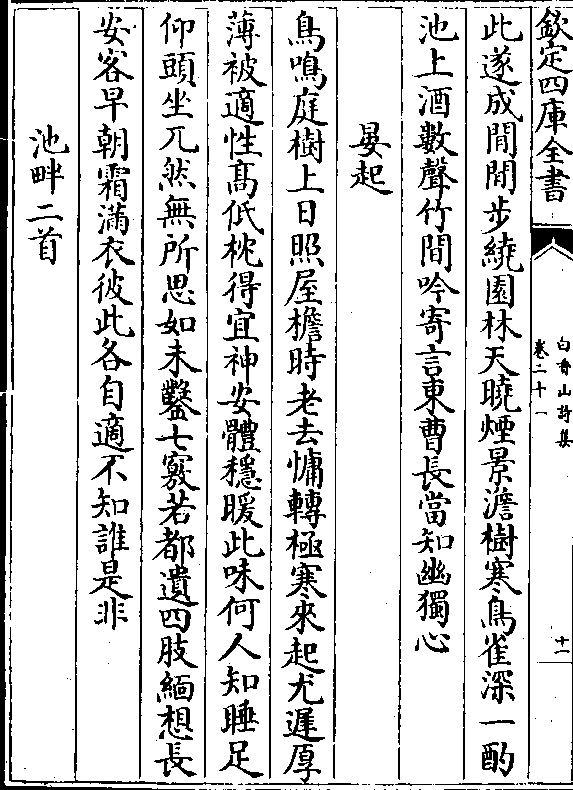 欽定四庫全書
白香山詩集
卷二十一
十一
此遂成閒閒步繞園林天曉煙景澹樹寒鳥雀深一酌
池上酒數聲竹間吟寄言東曹長當知幽獨心
晏起
鳥鳴庭樹上日照屋檐時老去慵轉極寒來起尤遲厚
薄被適性高低枕得宜神安體穩暖此味何人知睡足
仰頭坐兀然無所思如未鑿七竅若都遺四肢緬想長
安客早朝霜滿衣彼此各自適不知誰是非
池畔二首